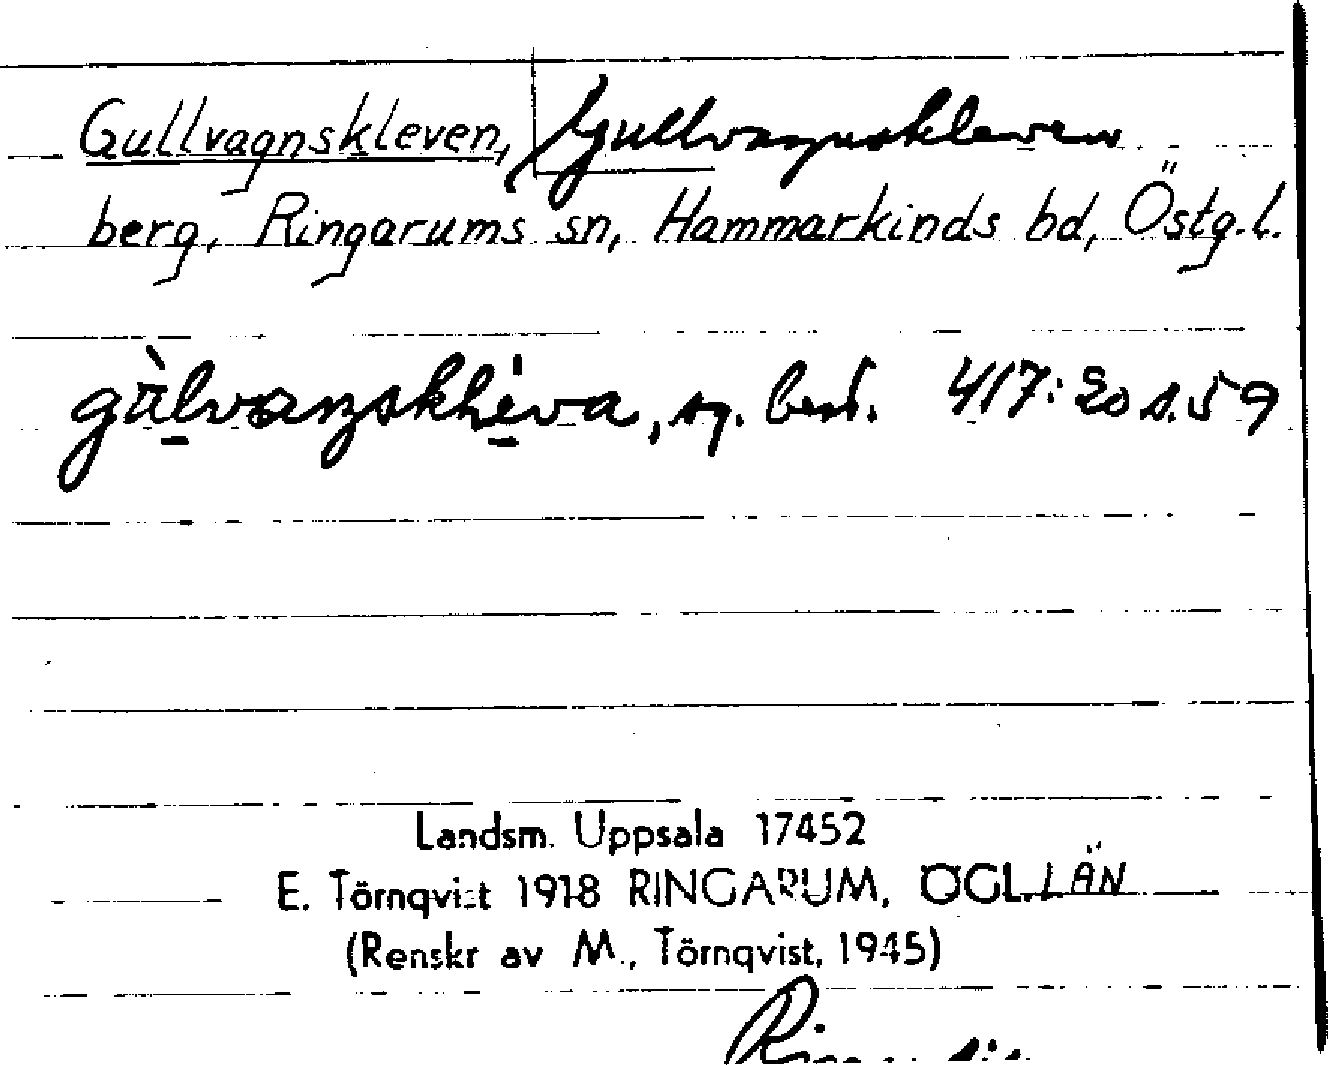 Gullvagnskleven, Gullvagnskleven
berg, Ringarums sn, Hammarkinds hd, Östg.l.
gùlvaŋskléva, sg. best. 417:20 s.59
Landsm. Uppsala 17452
E. Törnqvist 1918 RINGARUM, ÖGL.LÄN
(Renskr av M., Törnqvist, 1945)